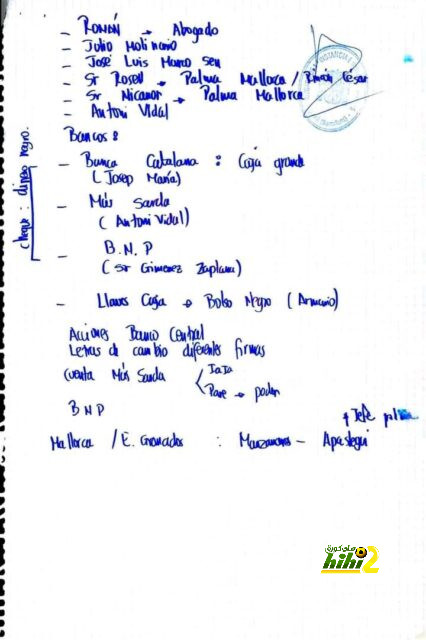 - ROMÁN → Abogado
- Julio Molinario
- José Luis Marco Seu
- Sr Rosell → Palma Mallorca / Simón César
- Sr Nicanor → Palma Mallorca
- Antoni Vidal
Bancos:
- Banca Catalana : Caja grande
(Josep María)
- Más Sarda
(Antoni Vidal)
- B.N.P
(Sr Gimenez Zaplana)
- Llaves Caja → Bolso Negro (Armario)
Acciones Banco Central
Letras de cambio diferentes firmas
Cuenta Más Sarda
TATA
Pare → poder
BNP
+ Jefe
Mallorca / E. Granados : Manzanares - Apastegui
cheque : dinero negro.
هاي كورة
hihi2